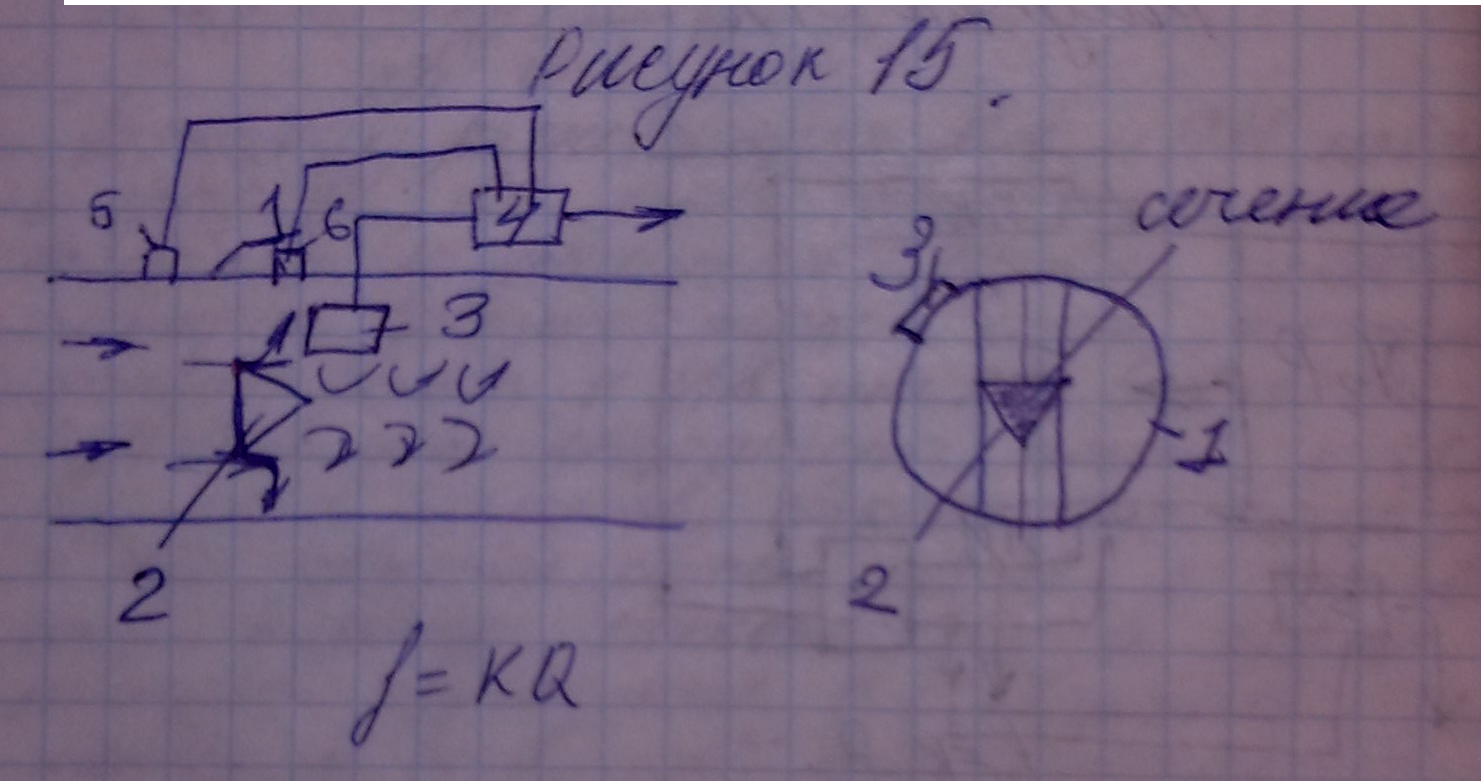 Рисунок 15.
5
1
6
4
3
2
сечение
3
1
2
f = KQ